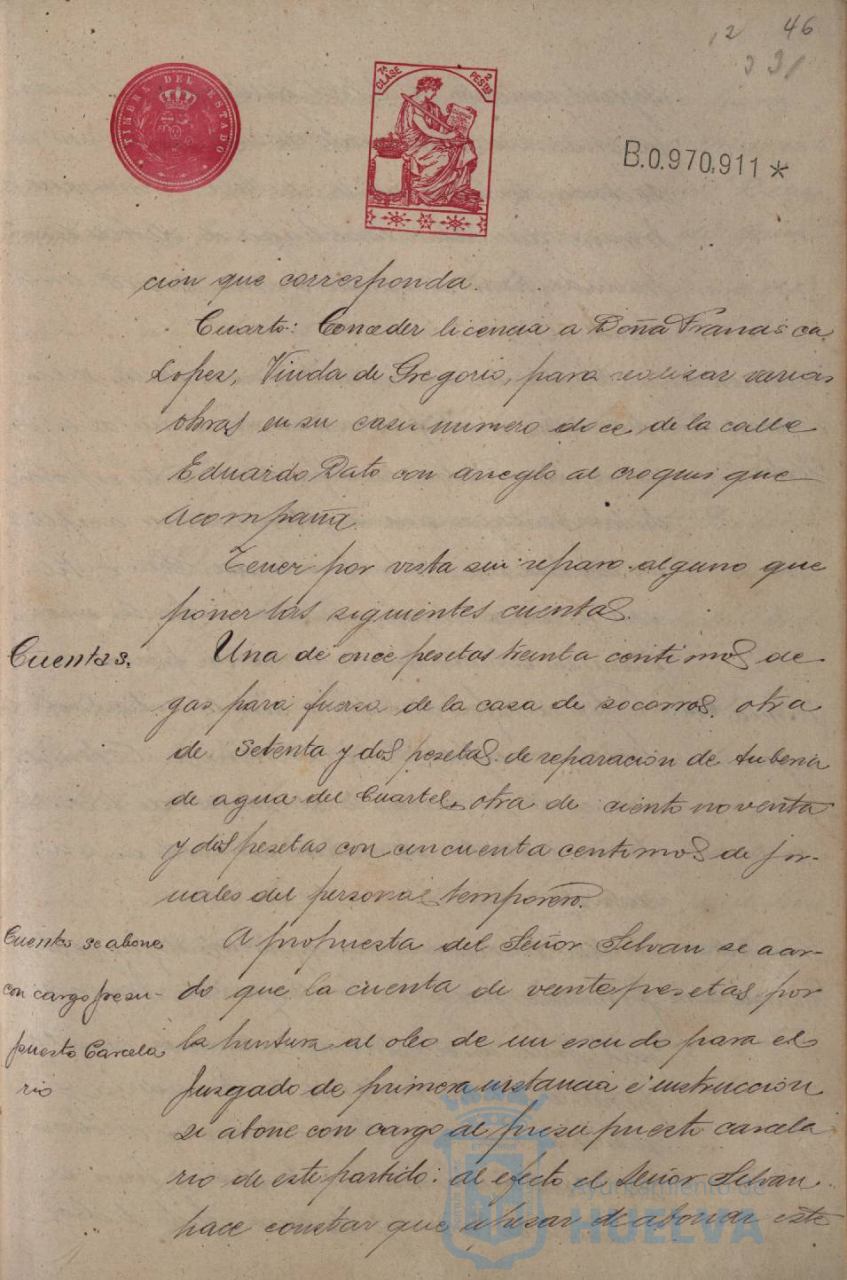 12 46
331
TIMBRE DEL ESTADO
7ª CLASE 2 PESTAS
B.0.970.911*
ción que corresponda.
Cuarto: Conceder licencia a Doña Francisca
Lopez, Viuda de Gregorio, para realizar varias
obras en su casa numero doce, de la calle
Eduardo Dato con arreglo al croquis que
acompaña.
Tener por vista sin reparo alguno que
poner las siguientes cuentas.
Cuentas.
Una de once pesetas treinta centimos de
gas para fuerza de la casa de socorros, otra
de setenta y dos pesetas de reparación de tuberia
de agua del Cuartel, otra de ciento noventa
y dos pesetas con cincuenta centimos de jor-
nales del personal temporero.
Cuentas se abone
con cargo presu-
puesto Carcela
rio
A propuesta del Señor Selvan se acor-
do que la cuenta de veinte pesetas por
la pintura al oleo de un escudo para el
Juzgado de primera instancia é instrucción
se abone con cargo al presupuesto carcela
rio de este partido: al efecto el Señor Selvan
hace constar que apesar de abonar este
Ayuntamiento de
HUELVA